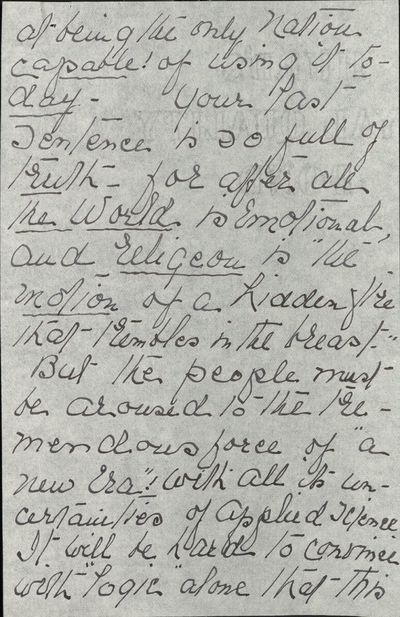 at being the only Nation
capable! of using it to-
day - Your last
Sentence is so full of
truth - for after all
the World is Emotional,
and Religeon is "the
motion of a hidden fire
that trembles in the breast."
But the people must
be aroused to the tre-
mendous force of "a
new Era"! with all its un-
certainties of Applied Science
It will be hard to convince
with "Logic" alone that this